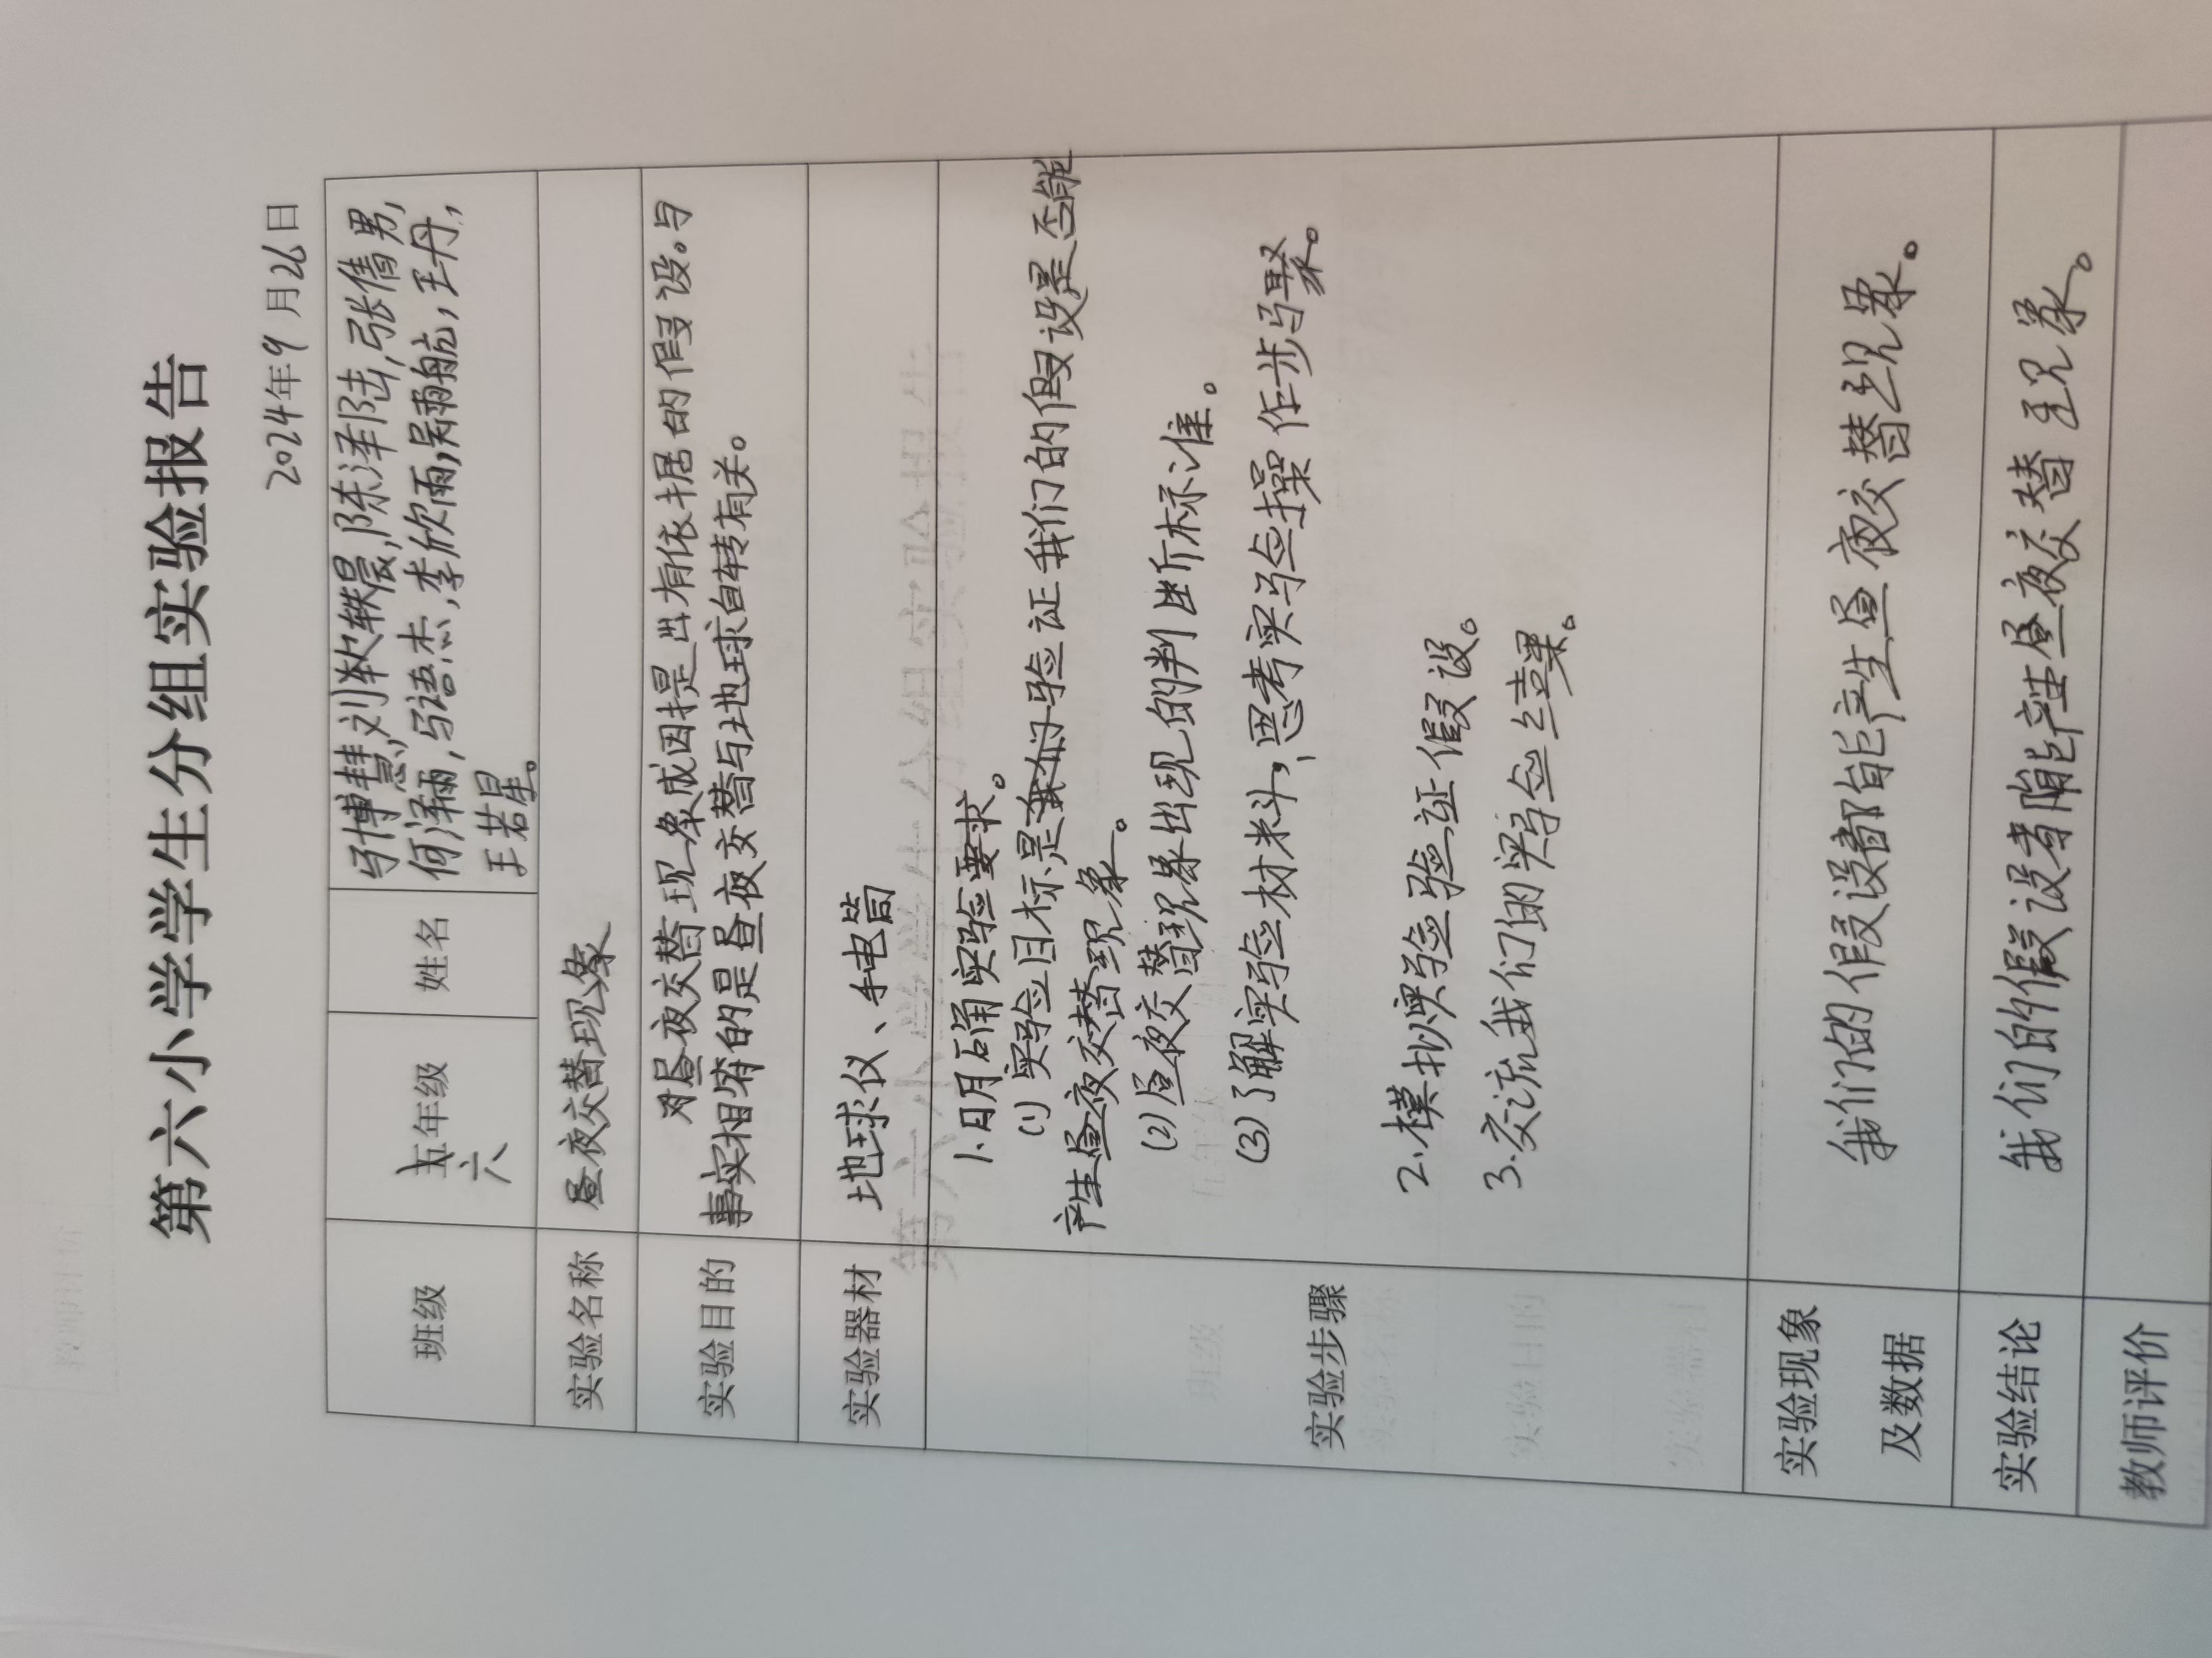 第六小学学生分组实验报告
2024年9月26日
班级 五年级 姓名 马博慧,刘轶晨,陈泽陆,张倩男,
六 何泽雨,马语杰,李欣雨,吴雨航,王丹,
王若星。
实验名称 昼夜交替现象
实验目的 对昼夜交替现象成因提出有依据的假设。与
事实相符的是昼夜交替与地球自转有关。
实验器材 地球仪、手电筒
实验步骤
1.明确实验要求。
(1)实验目标是我们验证我们的假设是否能
产生昼夜交替现象。
(2)昼夜交替现象出现的判断标准。
(3)了解实验材料,思考实验操作步骤。
2.模拟实验验证假设。
3.交流我们的实验结果。
实验现象
及数据 我们的假设都能产生昼夜交替现象。
实验结论 我们的假设都能产生昼夜交替现象。
教师评价